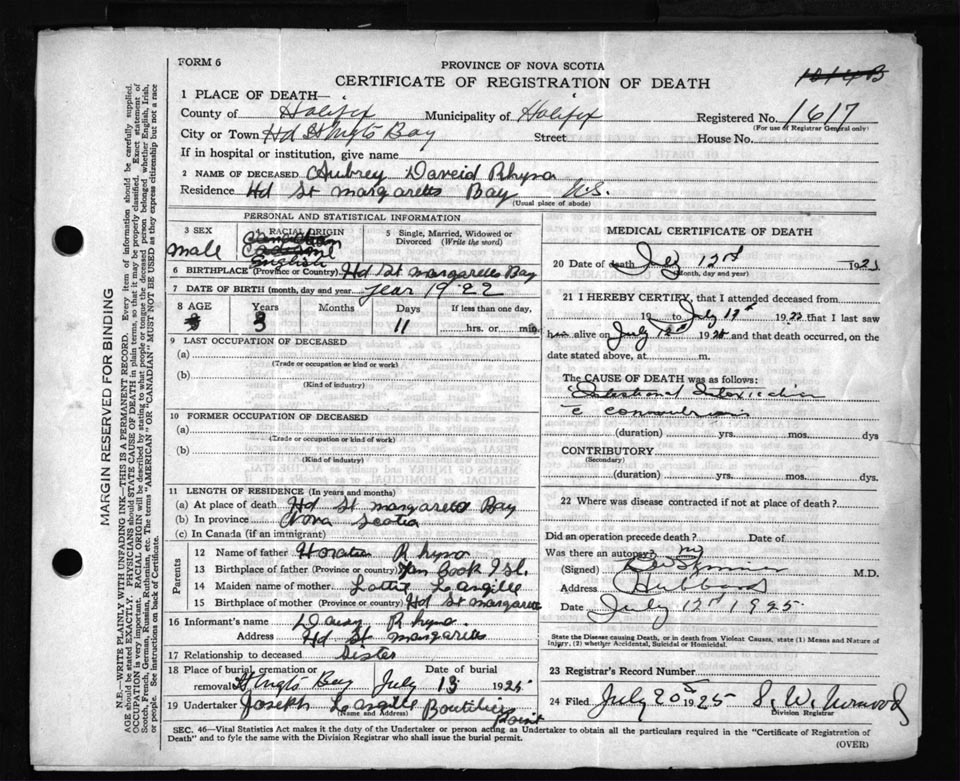 FORM 6
PROVINCE OF NOVA SCOTIA
CERTIFICATE OF REGISTRATION OF DEATH
1014B
1 PLACE OF DEATH—
County of Halifix Municipality of Halifix Registered No. 1617
(For use of Registrar General only)
City or Town Hd St Mgts Bay Street House No.
If in hospital or institution, give name
2 NAME OF DECEASED Aubrey Daveid Rhyno
Residence Hd St margarets Bay N.S.
(Usual place of abode)
PERSONAL AND STATISTICAL INFORMATION
3 SEX RACIAL ORIGIN 5 Single, Married, Widowed or Divorced (Write the word)
male English
6 BIRTHPLACE (Province or Country) Hd St margaretts Bay
7 DATE OF BIRTH (month, day and year) year 1922
8 AGE Years Months Days If less than one day,
3 11 hrs. or min.
9 LAST OCCUPATION OF DECEASED
(a)
(Trade or occupation or kind of work)
(b)
(Kind of industry)
10 FORMER OCCUPATION OF DECEASED
(a)
(Trade or occupation or kind of work)
(b)
(Kind of industry)
11 LENGTH OF RESIDENCE (In years and months)
(a) At place of death Hd St margarets Bay
(b) In province Nova Scotia
(c) In Canada (if an immigrant)
Parents
12 Name of father Horatio Rhyno
13 Birthplace of father (Province or country) Cook Isl.
14 Maiden name of mother Lottie Longille
15 Birthplace of mother (Province or country) Hd St margarets
16 Informant's name Daisy Rhyno
Address Hd St margarets
17 Relationship to deceased Sister
18 Place of burial, cremation or removal St Mgts Bay Date of burial July 13 1925
19 Undertaker Joseph Longille Boutiliers Point
(Name and Address)
MEDICAL CERTIFICATE OF DEATH
20 Date of death July 12nd 1925
(Month, day and year)
21 I HEREBY CERTIFY, that I attended deceased from
19 to July 12th 1922 that I last saw
him alive on July 12th 1925 and that death occurred, on the
date stated above, at m.
The CAUSE OF DEATH was as follows:
Intestinal Intoxication
c convulsions
(duration) yrs. mos. dys
CONTRIBUTORY
(Secondary)
(duration) yrs. mos. dys.
22 Where was disease contracted if not at place of death?
Did an operation precede death? Date of
Was there an autopsy? no
(Signed) M.D.
Address Hubbards
Date July 12nd 1925
State the Disease causing Death, or in death from Violent Causes, state (1) Means and Nature of Injury, (2) whether Accidental, Suicidal or Homicidal.
23 Registrar's Record Number
24 Filed July 20th 1925 S. W.
Division Registrar
SEC. 46—Vital Statistics Act makes it the duty of the Undertaker or person acting as Undertaker to obtain all the particulars required in the "Certificate of Registration of
Death" and to fyle the same with the Division Registrar who shall issue the burial permit.
(OVER)
MARGIN RESERVED FOR BINDING
N.B.—WRITE PLAINLY WITH UNFADING INK—THIS IS A PERMANENT RECORD. Every item of information should be carefully supplied.
AGE should be stated EXACTLY. PHYSICIANS should STATE CAUSE OF DEATH in plain terms, so that it may be properly classified. Exact statement of
OCCUPATION is very important. RACIAL ORIGIN will be described by stating to what people or tongue the deceased person belonged whether English, Irish,
Scotch, French, German, Russian, Ruthenian, etc. The terms "AMERICAN" OR "CANADIAN" MUST NOT BE USED as they express citizenship but not a race
or people. See instructions on back of Certificate.